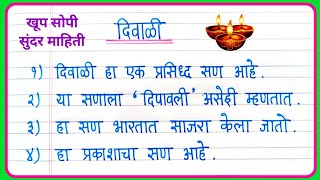 खूप सोपी
सुंदर माहिती
दिवाळी
१) दिवाळी हा एक प्रसिध्द सण आहे.
२) या सणाला 'दिपावली' असेही म्हणतात.
३) हा सण भारतात साजरा केला जातो.
४) हा प्रकाशाचा सण आहे.